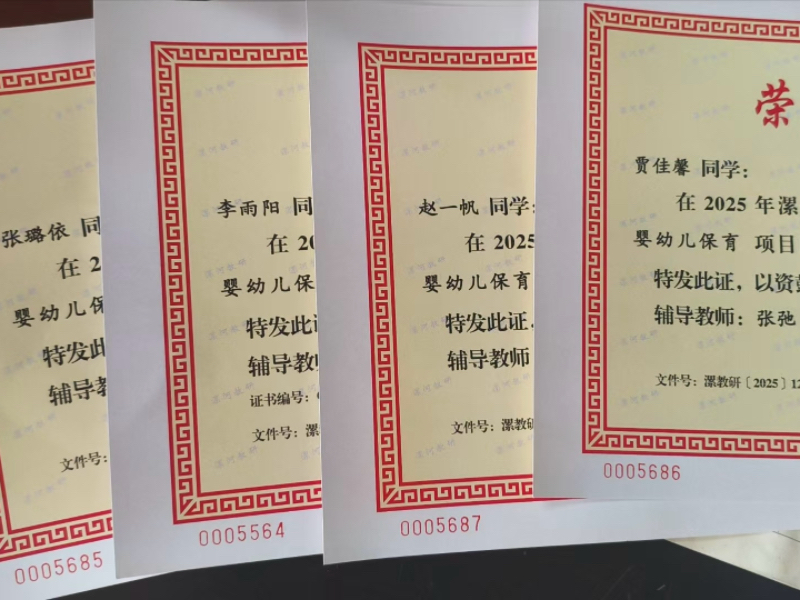 张璐依 同
在 2
婴幼儿保
特发此
辅导教
文件号：
0005685
李雨阳 同
在 20
婴幼儿保
特发此证
辅导教师
证书编号：
文件号：漯
0005564
赵一帆 同学：
在 2025
婴幼儿保育
特发此证，
辅导教师
文件号：漯教研
0005687
荣
贾佳馨 同学：
在 2025 年漯
婴幼儿保育 项目
特发此证，以资
辅导教师：张弛
文件号：漯教研〔2025〕12
0005686
漯河教研